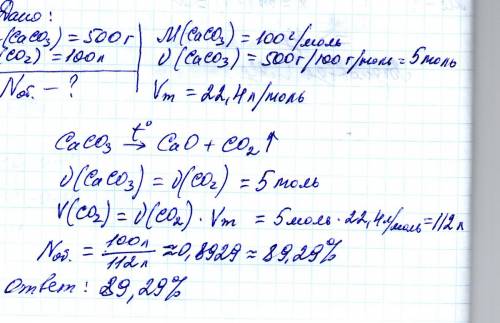 Дано:
(CaCO₃) = 500 г
(CO₂) = 100 л
Nоб. - ?
M(CaCO₃) = 100 г/моль
ν(CaCO₃) = 500г/100 г/моль = 5 моль
Vm = 22,4 л/моль
CaCO₃ t°→ CaO + CO₂↑
ν(CaCO₃) = ν(CO₂) = 5 моль
V(CO₂) = ν(CO₂) · Vm = 5 моль · 22,4 л/моль = 112 л
Nоб. = 100л/112 л ≈ 0,8929 ≈ 89,29%
Ответ: 89,29%